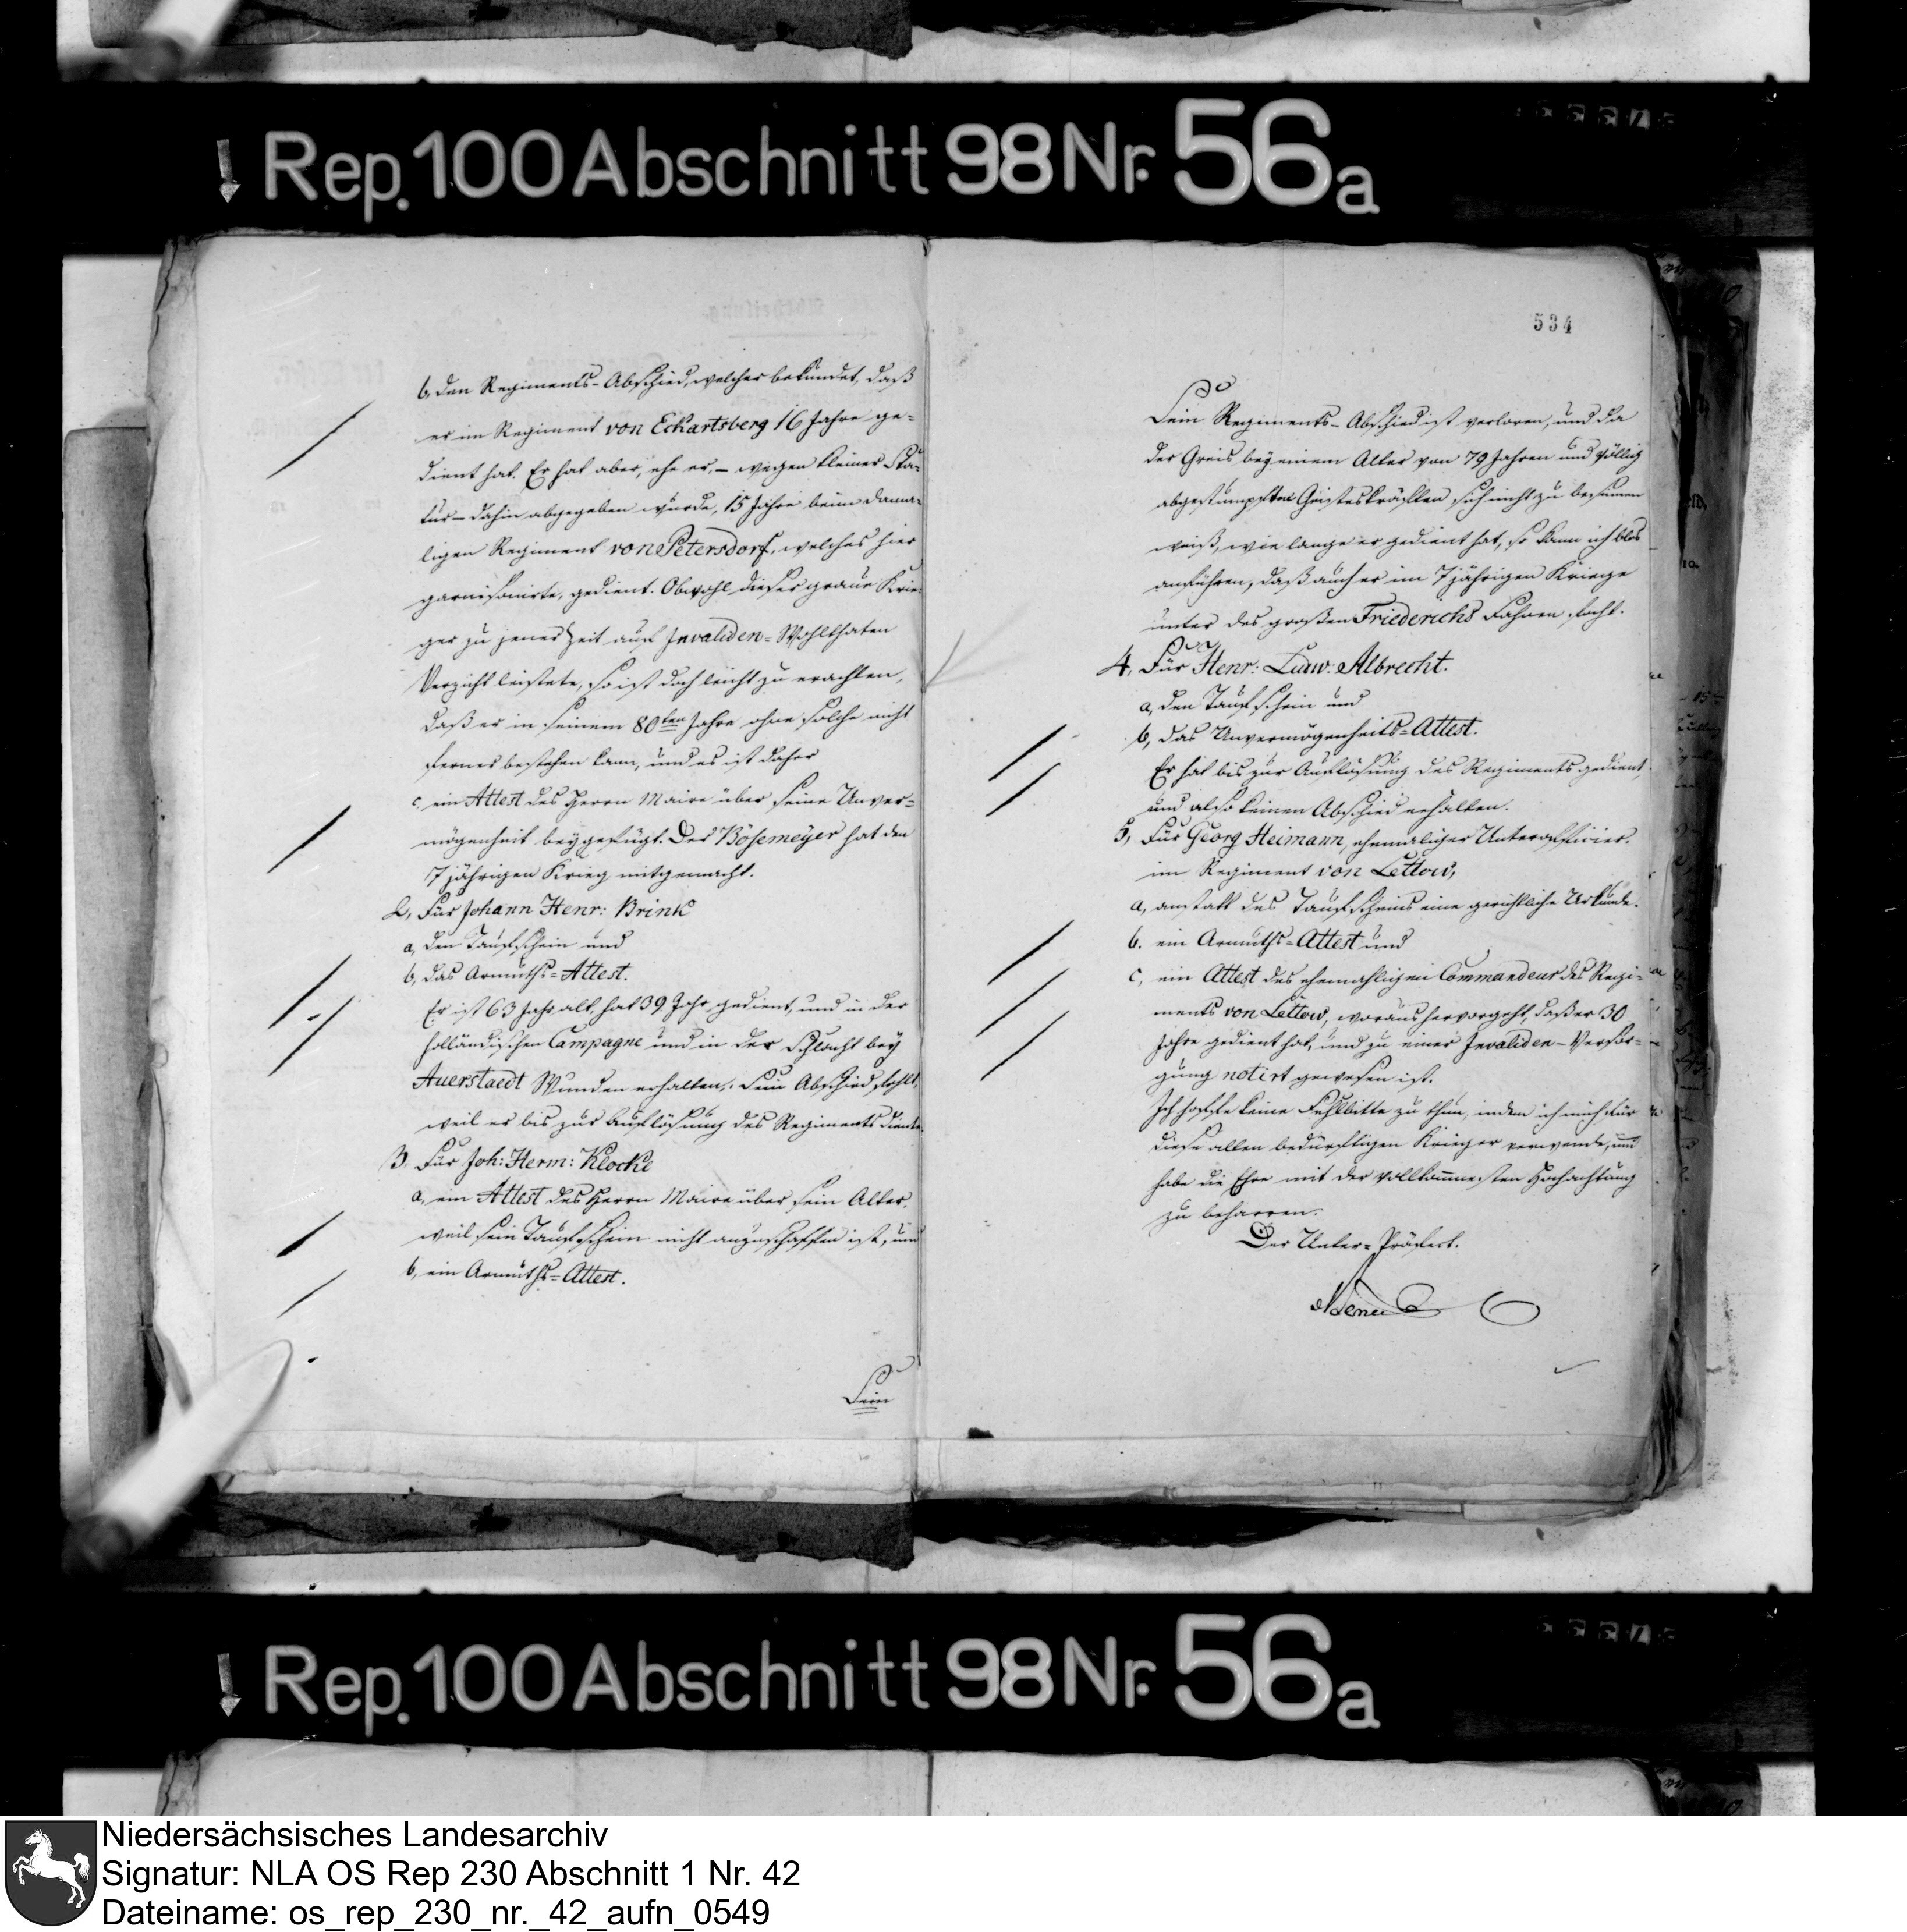 Rep. 100 Abschnitt 98 Nr. 56a
b, den Regiments-Abschied, welcher bekundet, daß
er im Regiment von Eckartsberg 16 Jahre ge-
dient hat. Er hat aber, ehe er, – wegen kleiner Sta-
tur – dahin abgegeben wurde, 15 Jahre beim dama-
ligen Regiment von Petersdorf, welches hier
garnisonirte, gedient. Obwohl dieser graue Krie-
ger zu jener Zeit auf Invaliden-Wohlthaten
Verzicht leistete, so ist doch leicht zu erachten,
daß er in seinem 80ten Jahre ohne solche nicht
ferner bestehen kann, und es ist daher
c, ein Attest des Herrn Maire über seine Unver-
mögenheit beygefügt. Der Bösemeyer hat den
7 jährigen Krieg mitgemacht.
2, Für Johann Henr: Brink
a, den Taufschein und
b, das Armuths-Attest.
Er ist 63 Jahr alt, hat 39 Jahr gedient, und in der
holländischen Campagne und in der Schlacht bey
Auerstaedt Wunden erhalten. Sein Abschied fehlt,
weil er bis zur Auflösung des Regiments diente.
3. Für Joh: Herm: Klocke
a, ein Attest des Herrn Maire über sein Alter,
weil sein Taufschein nicht anzuschaffen ist, und
b, ein Armuths-Attest.
Sein
534
Sein Regiments-Abschied ist verloren, und da
der Greis bey einem Alter von 79 Jahren und völlig
abgestumpften Geisteskräften sich nicht zu besinnen
weiß, wie lange er gedient hat, so kann ich blos
anführen, daß auch er im 7 jährigen Kriege
unter des großen Friederichs Fahnen focht.
4, Für Henr: Ludw: Albrecht.
a, den Taufschein und
b, das Unvermögenheits-Attest.
Er hat bis zur Auflösung des Regiments gedient,
und also keinen Abschied erhalten.
5, Für Georg Heimann, ehemaliger Unterofficier
im Regiment von Lettow,
a, anstatt des Taufscheins eine gerichtliche Urkunde.
b. ein Armuths-Attest und
c, ein Attest des ehemahligen Commandeur des Regi-
ments von Lettow, woraus hervorgeht, daß er 30
Jahre gedient hat, und zu einer Invaliden-Versor-
gung notirt gewesen ist.
Ich hoffe keine Fehlbitte zu thun, indem ich mich für
diese alten bedürftigen Krieger verwende, und
habe die Ehre mit der vollkommensten Hochachtung
zu beharren.
Der Unter-Präfect.
Rep. 100 Abschnitt 98 Nr. 56a
Niedersächsisches Landesarchiv
Signatur: NLA OS Rep 230 Abschnitt 1 Nr. 42
Dateiname: os_rep_230_nr._42_aufn_0549